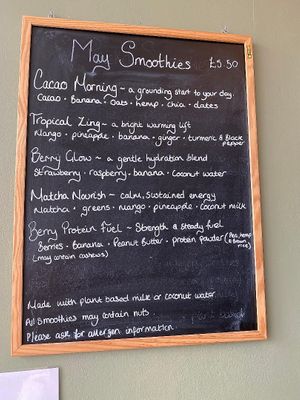 May Smoothies £5.50
Cacao Morning ~ a grounding start to your day.
Cacao • Banana • Oats • hemp • chia • dates
Tropical Zing ~ a bright warming lift
Mango • pineapple • banana • ginger • turmeric & Black
pepper
Berry Glow ~ a gentle hydration blend
Strawberry • raspberry • banana • Coconut water
Matcha Nourish ~ calm, sustained energy
Matcha • greens • mango • pineapple • coconut milk
Berry Protein Fuel ~ Strength & Steady fuel
Berries • Banana • Peanut Butter • protein powder (Pea, hemp
& Brown rice)
(may contain cashews)
Made with plant based milk or coconut water
All smoothies may contain nuts.
Please ask for allergen information.